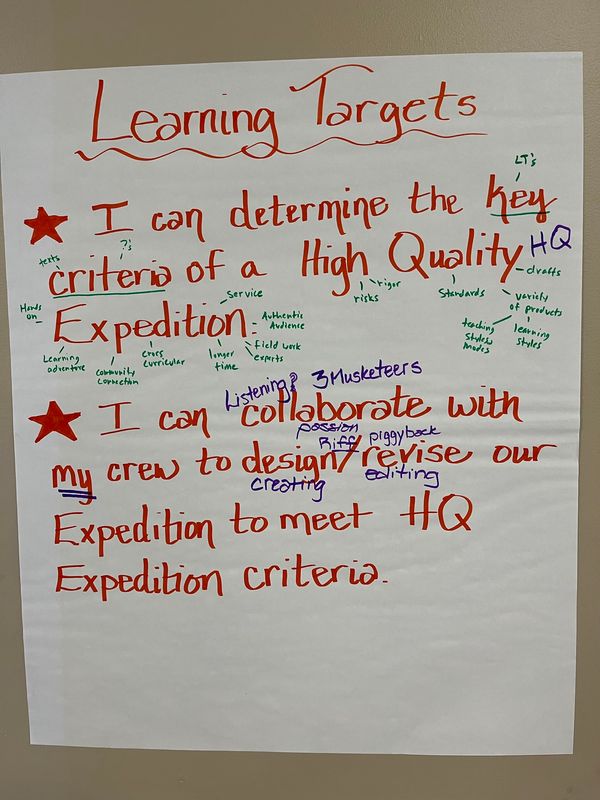 Learning Targets
LT's
I can determine the key
?'s
texts
criteria of a High Quality HQ
drafts
risks
rigor
Standards
variety of products
teaching styles modes
learning styles
Hands on
Service
Expedition.
Authentic Audience
Learning adventure
Community Connection
Cross Curricular
longer time
field work experts
Listening? 3 Musketeers
I can collaborate with
passion
Riff piggyback
my crew to design/revise our
creating editing
Expedition to meet HQ
Expedition criteria.